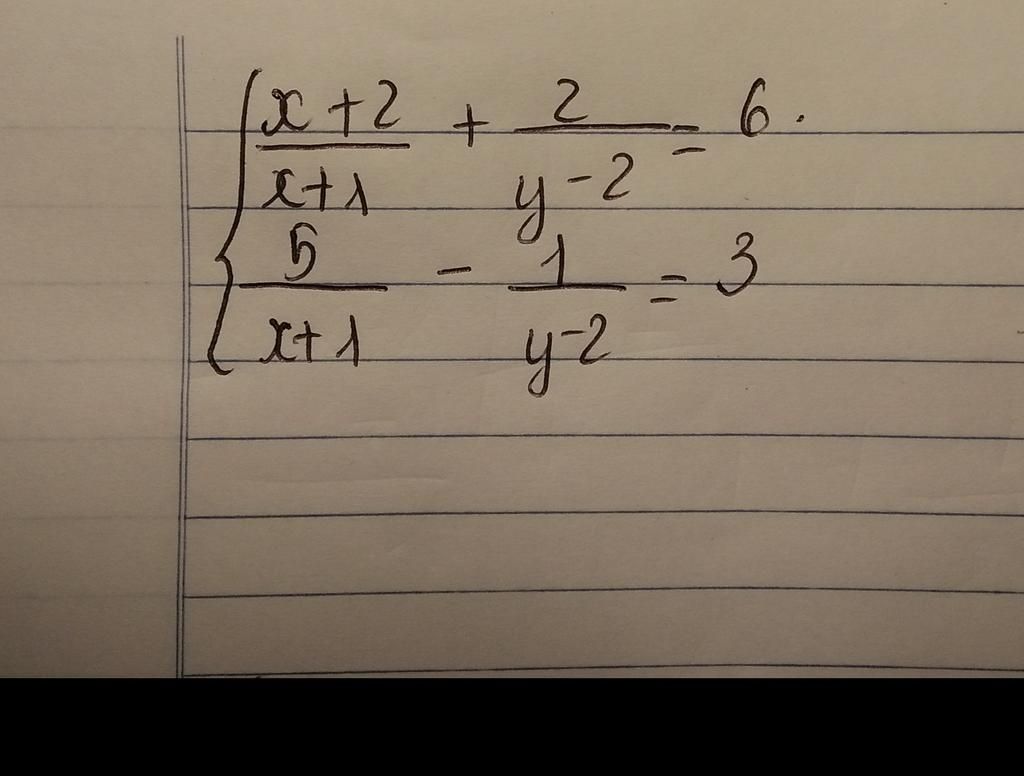 x+2/x+1 + 2/y-2 = 6.
5/x+1 - 1/y-2 = 3